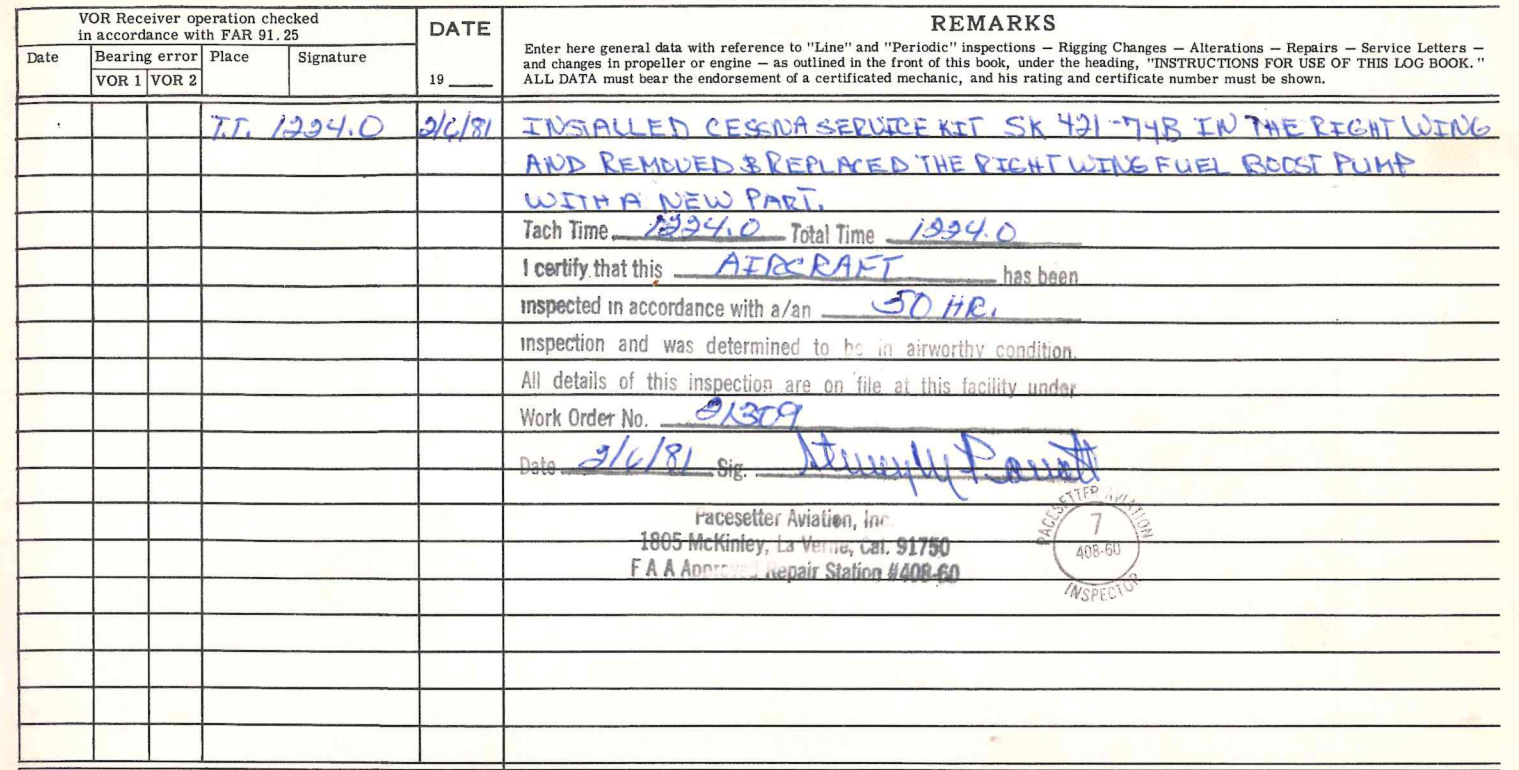 VOR Receiver operation checked
in accordance with FAR 91.25
DATE
REMARKS
Date
Bearing error
Place
Signature
VOR 1
VOR 2
19
Enter here general data with reference to "Line" and "Periodic" inspections — Rigging Changes — Alterations — Repairs — Service Letters —
and changes in propeller or engine — as outlined in the front of this book, under the heading, "INSTRUCTIONS FOR USE OF THIS LOG BOOK."
ALL DATA must bear the endorsement of a certificated mechanic, and his rating and certificate number must be shown.
T.T. 1224.0 2/6/81 INSTALLED CESSNA SERVICE KIT SK 421-74B IN THE RIGHT WING
AND REMOVED & REPLACED THE RIGHT WING FUEL BOOST PUMP
WITH A NEW PART.
Tach Time 1224.0 Total Time 1224.0
I certify that this AIRCRAFT has been
inspected in accordance with a/an 50 HR.
inspection and was determined to be in airworthy condition.
All details of this inspection are on file at this facility under
Work Order No. 21309
Date 2/6/81 Sig.
Pacesetter Aviation, Inc.
1805 McKinley, La Verne, Cal. 91750
F A A Approved Repair Station #408-60
PACESETTER AVIATION
7
408-60
INSPECTOR